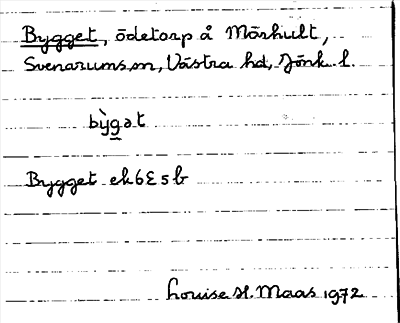 Bygget, ödetorp å Mörhult,
Svenarums sn, Västra hd, Jönk. l.
bỳg̲ət
Bygget ek 6E5b
Louise H. Maas 1972